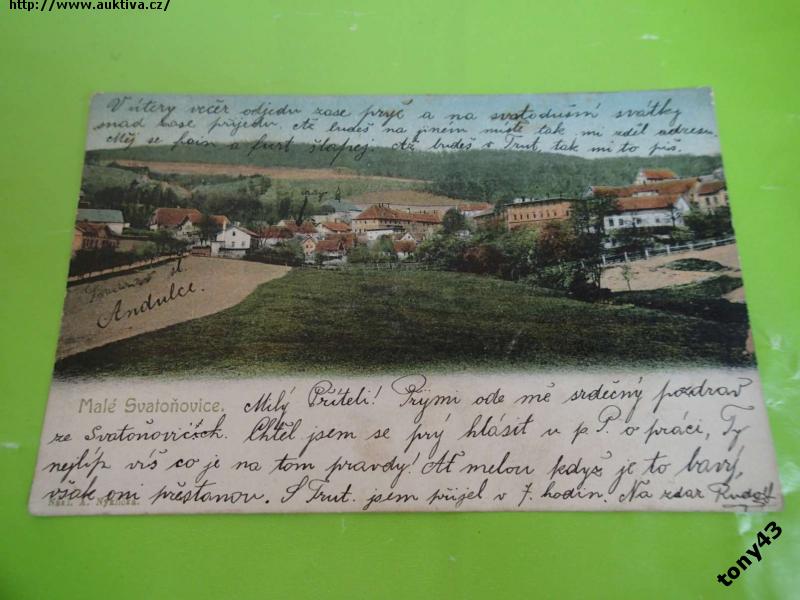 http://www.auktiva.cz/
V úterý večer odjedu zase pryč a na svatodušní svátky
snad zase přijedu. Až budeš na jiném místě tak mi zděl adresu.
Měj se fain a furt šlapej. Až budeš v Trut. tak mi to piš.
st.
Andulce.
Malé Svatoňovice.
Milý Příteli! Přijmi ode mě srdečný pozdrav
ze Svatoňovic. Chtěl jsem se prý hlásit u p. P. o práci, Ty
nejlíp víš co je na tom pravdy! Ať melou když je to baví,
však oni přestanou. S Trut. jsem přijel v 7. hodin. Na zdar Rudolf
Nákl. A. Nyklíčka.
tony43